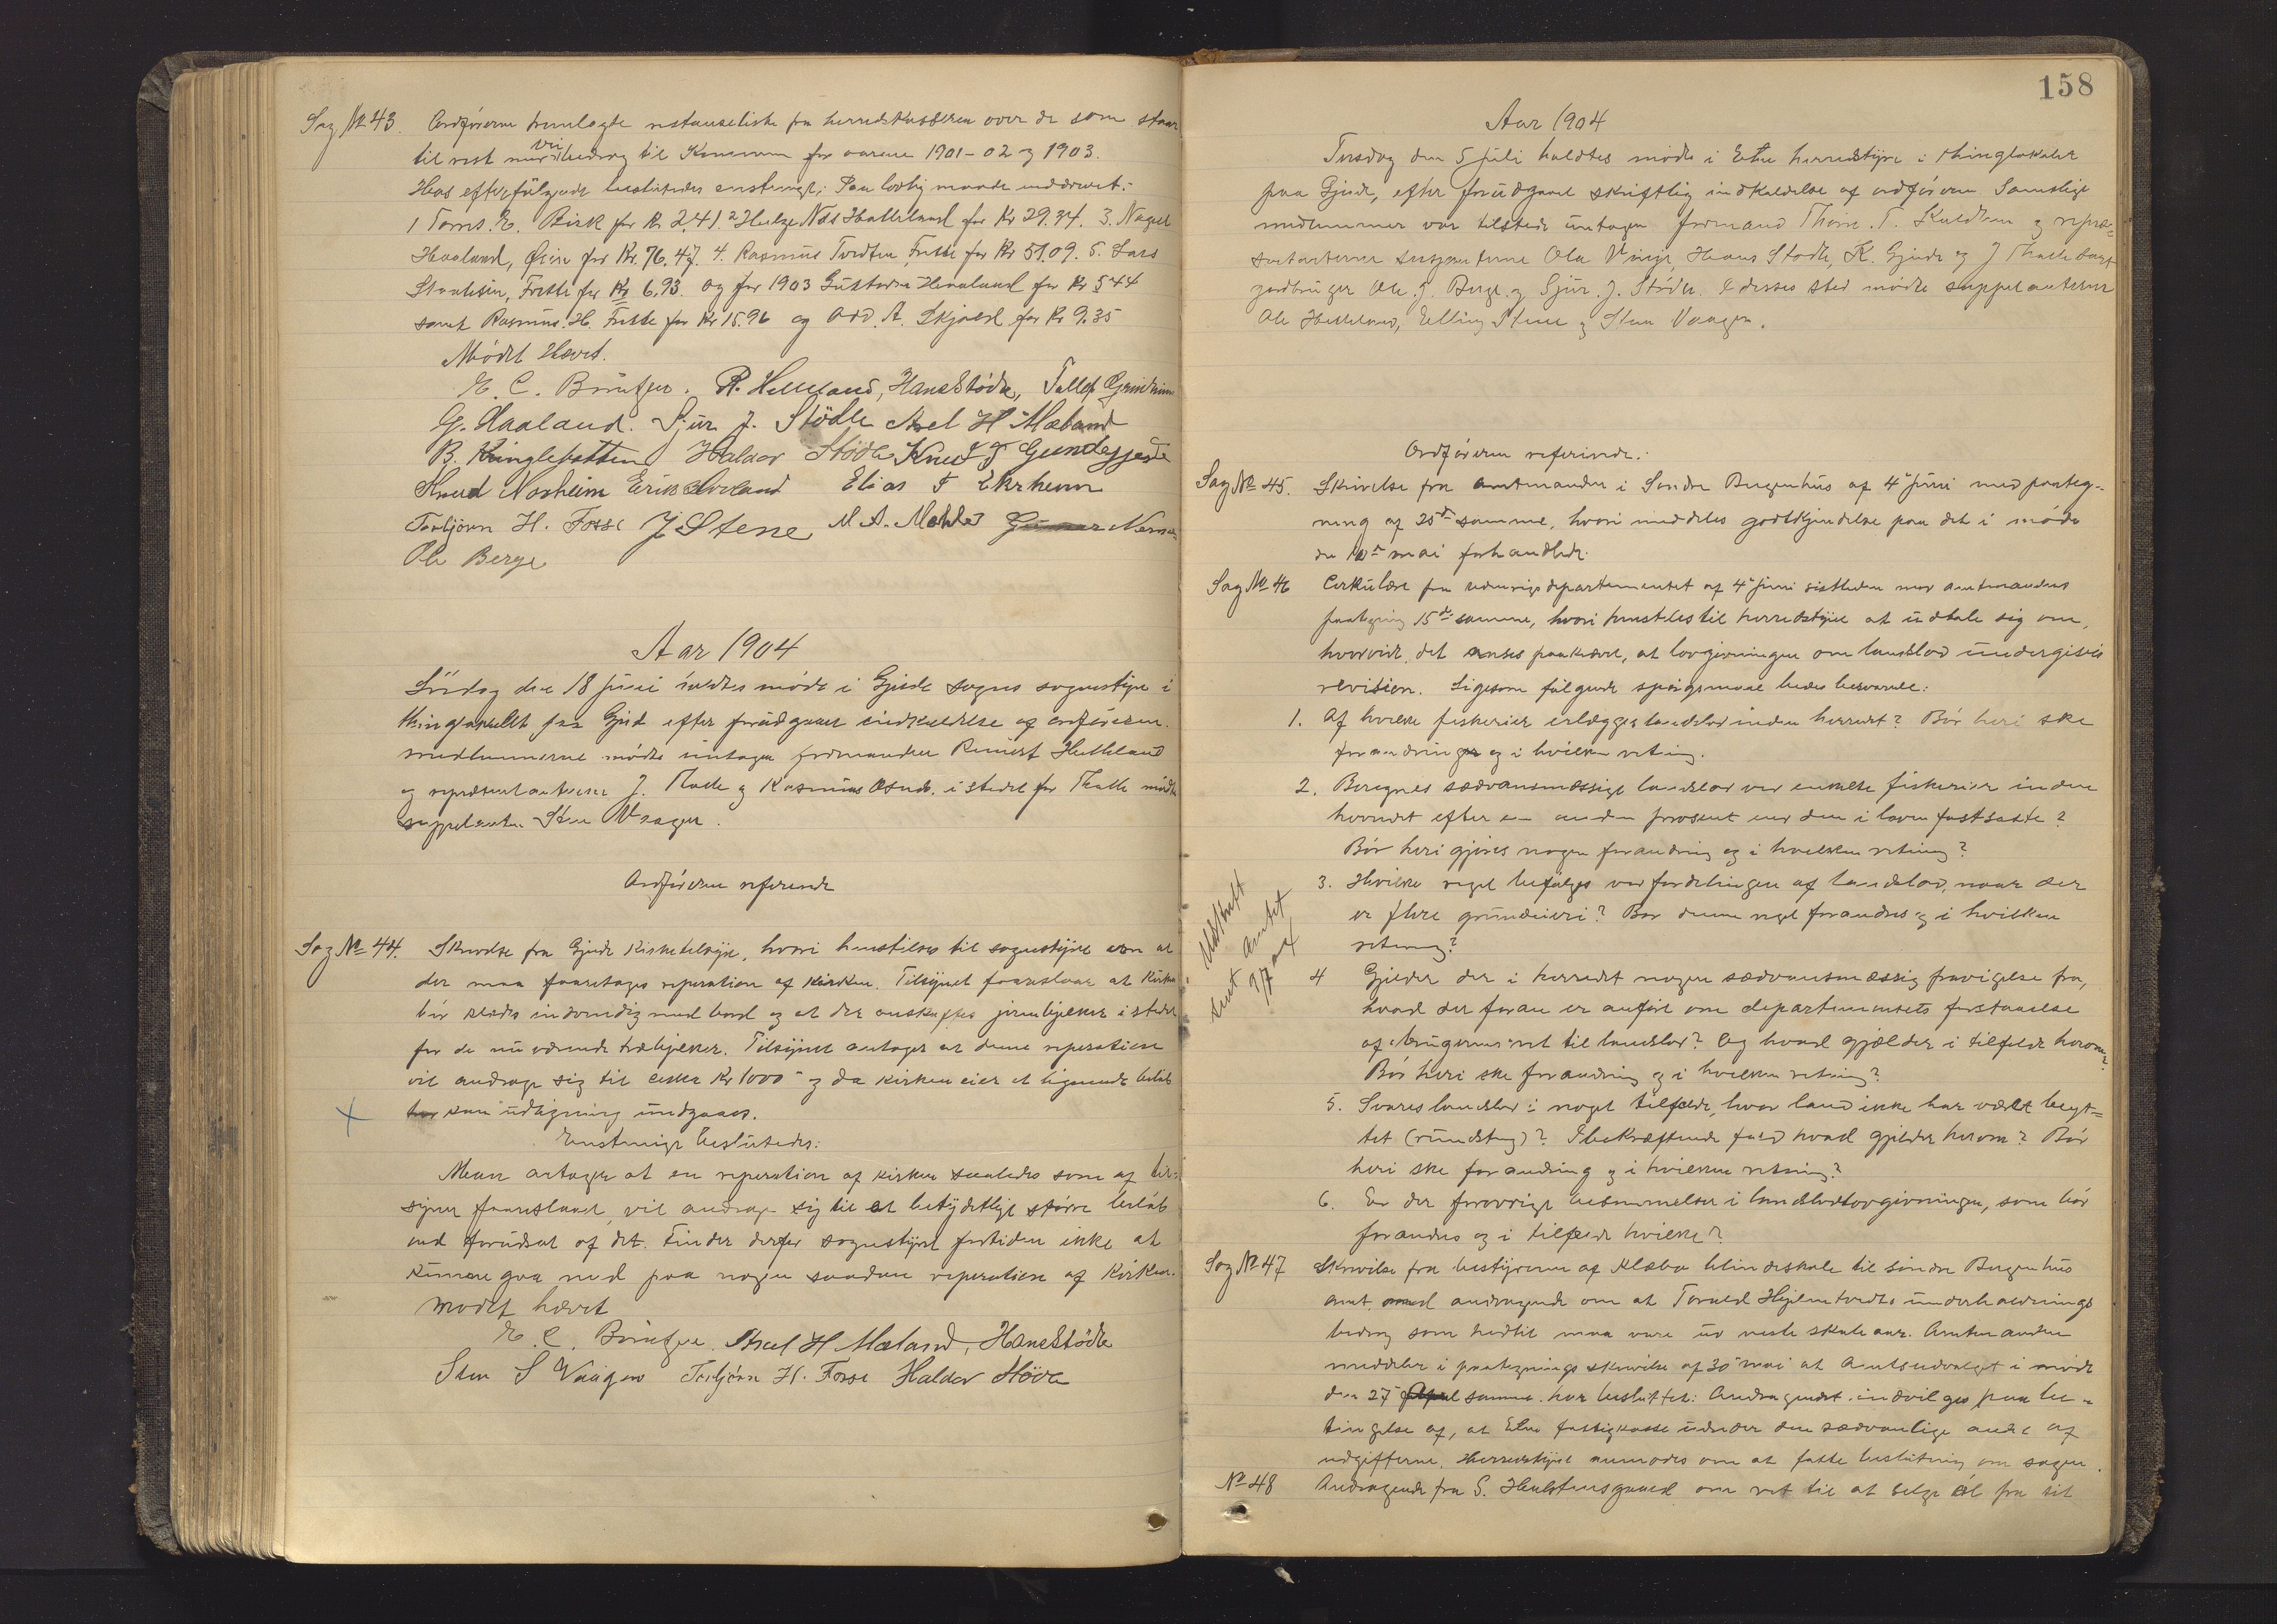 Sag № 43. Ordføreren fremlagde restanseliste fra herredskasseren over de som staar
til rest med veibidrag til Kommunen for aarene 1901-02 og 1903.
Hos efterfølgende besluttedes enstemigt: Paa lovlig maade inddrevet:
1 Tores. E. Birk for Kr 2,41. 2 Helge Nils Hatteland for Kr 29.34. 3. Nagel
Haaland, Øien for Kr. 76,47. 4. Rasmus Tvedten Frette for Kr 51.09. 5. Lars
Frette for Kr 6,93. og for 1903 Haaland for Kr 5 44
samt Rasmus. H. Frette for Kr 15.96 og Odd. A. Skjold for Kr 9.35
Mødet Hævet.
E. C. Børretzen. R. Helleland, Hans Stødle, Tollef Grindheim
G. Haaland. Sjur J. Stödle Axel H Mæland
B. Kringlebotten Haldor Stødle Knut T Gundegjerde
Knud Norheim Erik Elias T Ekrheim
Torbjörn H. Fosse J. Stene M. A. Mehle
Ole Berge
Aar 1904
Lördag den 18 juni holdtes møde i Gjerde sogns sognestyre i
thinglokalet paa Gjerde efter forudgaaet indkaldelse af ordføreren.
medlemmerne mødte untagen formanden Reinert Helleland
og repræsentanterne J. Thalle og Rasmus Osnes. i stedet for Thalle mødte
suppleanten Sten Vaagen.
Ordføreren refererede
Sag № 44. Skrivelse fra Gjerde Kirketilsyn, hvori henstilles til sognestyret om at
der maa foretages reperation af kirken. Tilsynet foreslaar at kirken
bør klædes indvendig med bord og at der anskaffes jernbjelker i stedet
for de nu værende træbjelker. Tilsynet antager at denne reperation
vil andrage sig til cirka Kr 1000 og da kirken eier et lignende beløb
kan udligning undgaaes.
Enstemigt besluttedes:
Man antager at en reperation af kirken saaledes som af til-
synet foreslaaet, vil andrage sig til et betydeligt større beløb
end forudsat af det. Finder derfor sognestyret fortiden ikke at
kunne gaa med paa nogen saadan reperation af Kirken.
Mødet hævet
E. C. Børretzen. Axel H Mæland, Hans Stödle
Sten S Vaagen Torbjørn H. Fosse Haldor Støle
158
Aar 1904
Tirsdag den 5 juli holdtes møde i Etne herredstyre i thinglokalet
paa Gjerde, efter forudgaaet skriftlig indkaldelse af ordføreren. Samtlige
medlemmer var tilstede untagen formand Thore. T. Kaldheim og repræ-
sentanterne Ola Vinje, Hans Stødle, K. Gjerde og J Thalle samt
gaardbruger Ole. J. Berge. og Sjur. J. Stödle. I disses sted mødte suppleanterne
Ole Helleland, Elling Stene og Sten Vaagen.
Ordføreren refererede:
Sag № 45. Skrivelse fra amtmanden i Søndre Bergenhus af 4de juni med paateg-
ning af 25de samme, hvori meddeles godkjendelse paa det i møde
den 10de mai forhandlede.
Sag № 46 Cirkulære fra redenrigsdepartementet af 4de juni sistleden med amtmandens
paategning 15de samme, hvori henstilles til herredstyret at udtale sig om,
hvorvidt det anses paakrævet, at lovgivningen om landslod undergives
revision. Ligesom følgende spørgsmaal bedes besvarede:
1. Af hvilke fiskerier erlægges landslod inden herredet? Bør heri ske
forandringer og i hvilken retning.
2. Beregnes sædvansmæssige landslod ved enkelte fiskerier inden
herredet efter en anden prosent end den i loven fastsatte?
Bör heri gjøres nogen forandring og i hvilken retning?
3. Hvilke regel befølges ved fordelingen af landslod, naar der
er flere grundeiere? Bør denne regel forandres og i hvilken
retning?
Udskrift
sent amtet
9/7 04
4 Gjelder der i herredet nogen sædvansmæssig fravigelse fra,
hvad der foran er anført om departementets forstaaelse
af "brugerens" ret til landslod? Og hvad gjælder i tilfælde herom?
Bör heri ske forandring og i hvilken retning?
5. Svares landslod i noget tilfælde, hvor land ikke har været benyt-
tet (rundstæng)? I bekræftende fald hvad gjelder herom? Bör
heri ske forandring og i hvilken retning?
6. Er der forøvrigt bestemmelser i landslodlovgivningen, som bør
forandres og i tilfælde hvilke?
Sag № 47 Skrivelse fra bestyreren af Klæbu blindeskole til søndre Bergenhus
amt med andragende om at Torvald Hjelmtvedts underholdnings
bidrag som hedtil maa vare ud næste skoleaar. Amtmanden
meddeler i paategningsskrivelse af 30 mai at Amtsudvalget i møde
den 27 samme har besluttet: Andragendet indvilges paa be-
tingelse af, at Etne fattigkasse udreder den sædvanlige andel af
udgifterne. Herredstyret anmodes om at fatte beslutning om sagen.
№ 48 Andragende fra S. Halstensgaard om ret til at selge øl fra sit